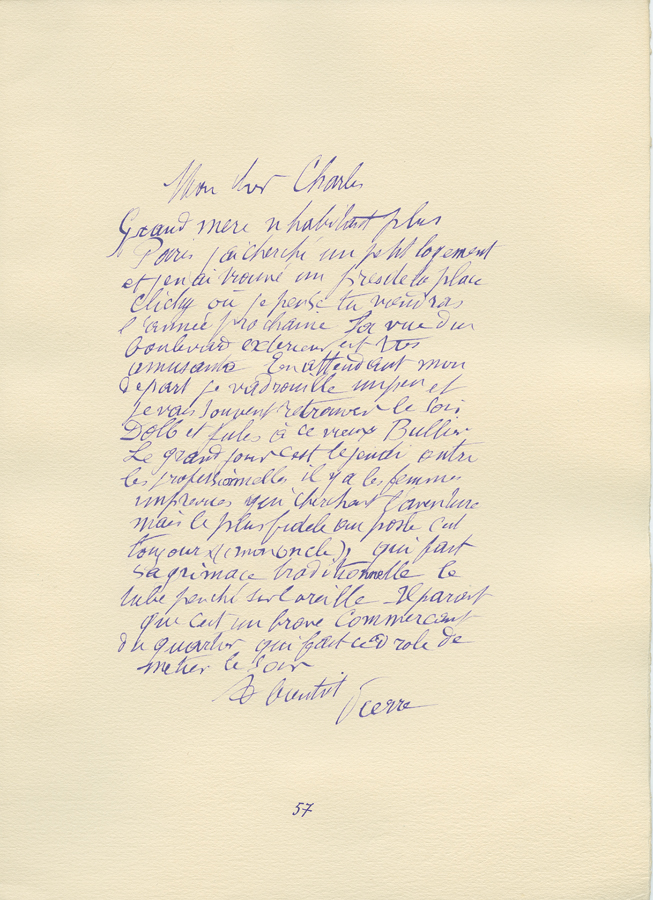 Mon cher Charles
Grand mere n habitant plus
Paris j'ai cherché un petit logement
et j'en ai trouvé un pres de la place
Clichy ou je pense tu viendras
l'année prochaine La vue d'un
boulevard exterieur est tres
amusante En attendant mon
depart je vadrouille un peu et
je vais souvent retrouver le soir
Dolb et Jules à ce vieux Bullier
Le grand jour c'est le jeudi entre
les professionnelles il y a les femmes
imprevues qui cherchent l'aventure
mais le plus fidele au poste c'est
toujours (mon oncle), qui fait
sa grimace traditionnelle le
tube penché sur l'oreille Il parait
que c'est un brave Commercant
du quartier qui fait ce drole de
metier le soir
A bientot
Pierre
57